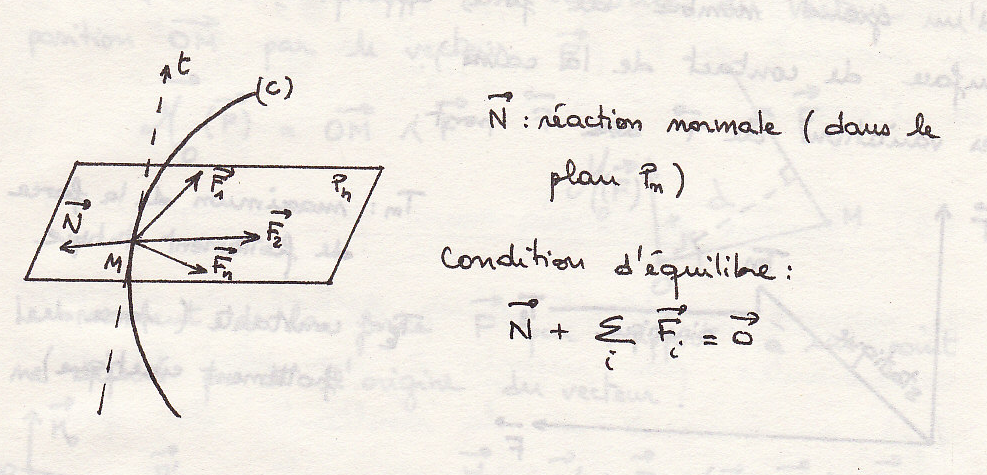 t
(C)
Pₙ
F⃗₁
N⃗
F⃗₂
M
F⃗ₙ
N⃗ : réaction normale ( dans le
plan Pₙ )
Condition d'équilibre :
N⃗ + Σᵢ F⃗ᵢ = 0⃗